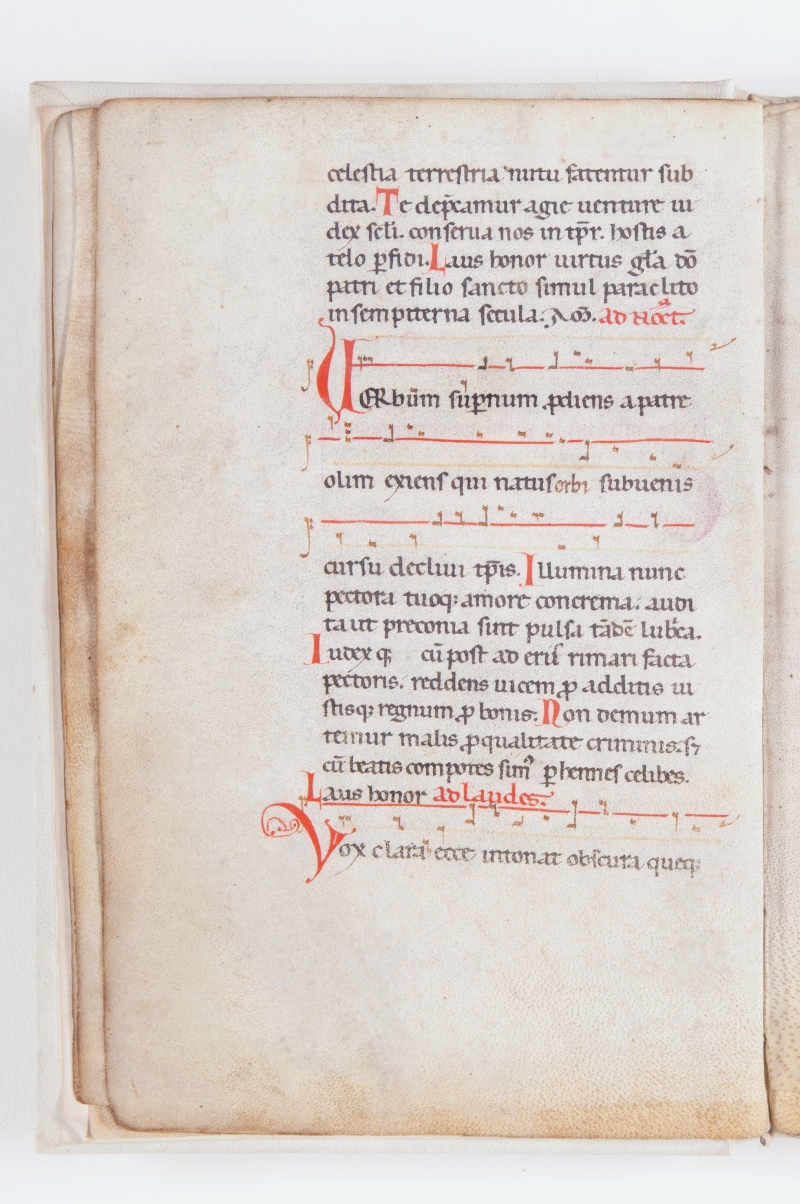 celestia terrestria nutu fatentur sub
dita. Te dep̄camur agie uenture iu
dex scl̄i. conserua nos in tp̄r. hostis a
telo ꝑfidi. Laus honor uirtus gl̄a dō
patri et filio sancto simul paraclito
in sempiterna secula. Am̄. ad noct̄.
UERbūm sup̄num ꝓdiens a patre
olim exiens qui natus orbi subuenis
cursu decliui tp̄is. Illumina nunc
pectora tuoqꝫ amore concrema. audi
ta ut preconia sint pulsa tādē lubͥca.
Iudex qꝫ cū post ad eris rimari facta
pectoris. reddens uicem ꝓ abditis iu
stisqꝫ regnum ꝓ bonis. Non demum ar
temur malis ꝓ qualitate criminis. sꝫ
cū beatis compotes simꝰ ꝑhennes celibes.
Laus honor ad laudes.
Vox clara ecce intonat obscura queqꝫ